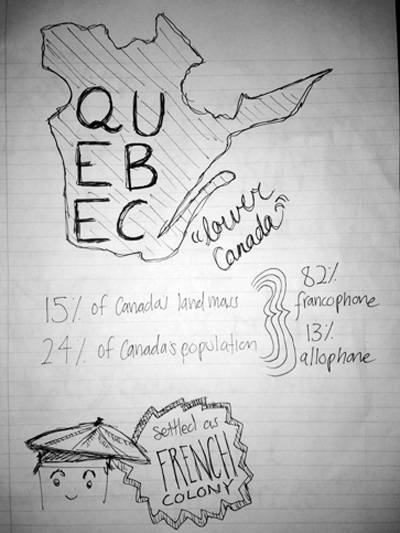 QU
EB
EC
"lower
Canada"
15% of Canada's landmass
24% of Canada's population
82%
francophone
13%
allophone
settled as
FRENCH
COLONY